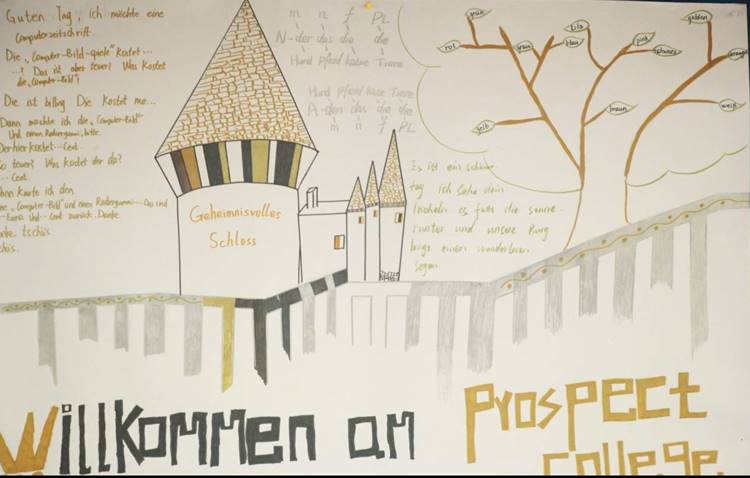 Guten Tag, ich möchte eine
Computerzeitschrift.
Die „Computer-Bild-spiele" kostet...
...! Das ist aber teuer! Was kostet
die „Computer-Bild"?
Die ist billig Die kostet nur...
Dann möchte ich die „Computer-Bild"
Und einen Radiergummi, bitte.
Der hier kostet... Cent.
So teuer? Was kostet der da?
... Cent.
kaufe ich den
„Computer-Bild" und einen Radiergummi... Das sind
Euro Und... Cent zurück. Danke
tschüs.
m n f PL
N-der das die die
Hund Pferd Katze Tiere
Hund Pferd Katze Tiere
A-den das die die
m n f PL
grün
rot
grau
blau
lila
pink
schwarz
golden
orange
gelb
braun
weiß
Geheimnisvolles
Schloss
Es ist ein schöner
tag ich sehe dein
lächeln es fällt die sonne
runter und unsere Burg
einen wunderbaren
segen
Willkommen am
Prospect
college